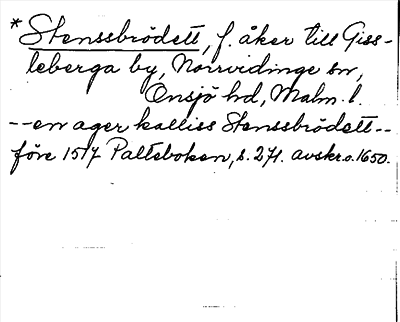 * Stenssbrödett, f. åker till Giss-
leberga by, Norrvidinge sn,
Onsjö hd, Malm. l.
-- en ager kalliss Stenssbrödett --
före 1517 Palteboken, s. 271. avskr. o. 1650.